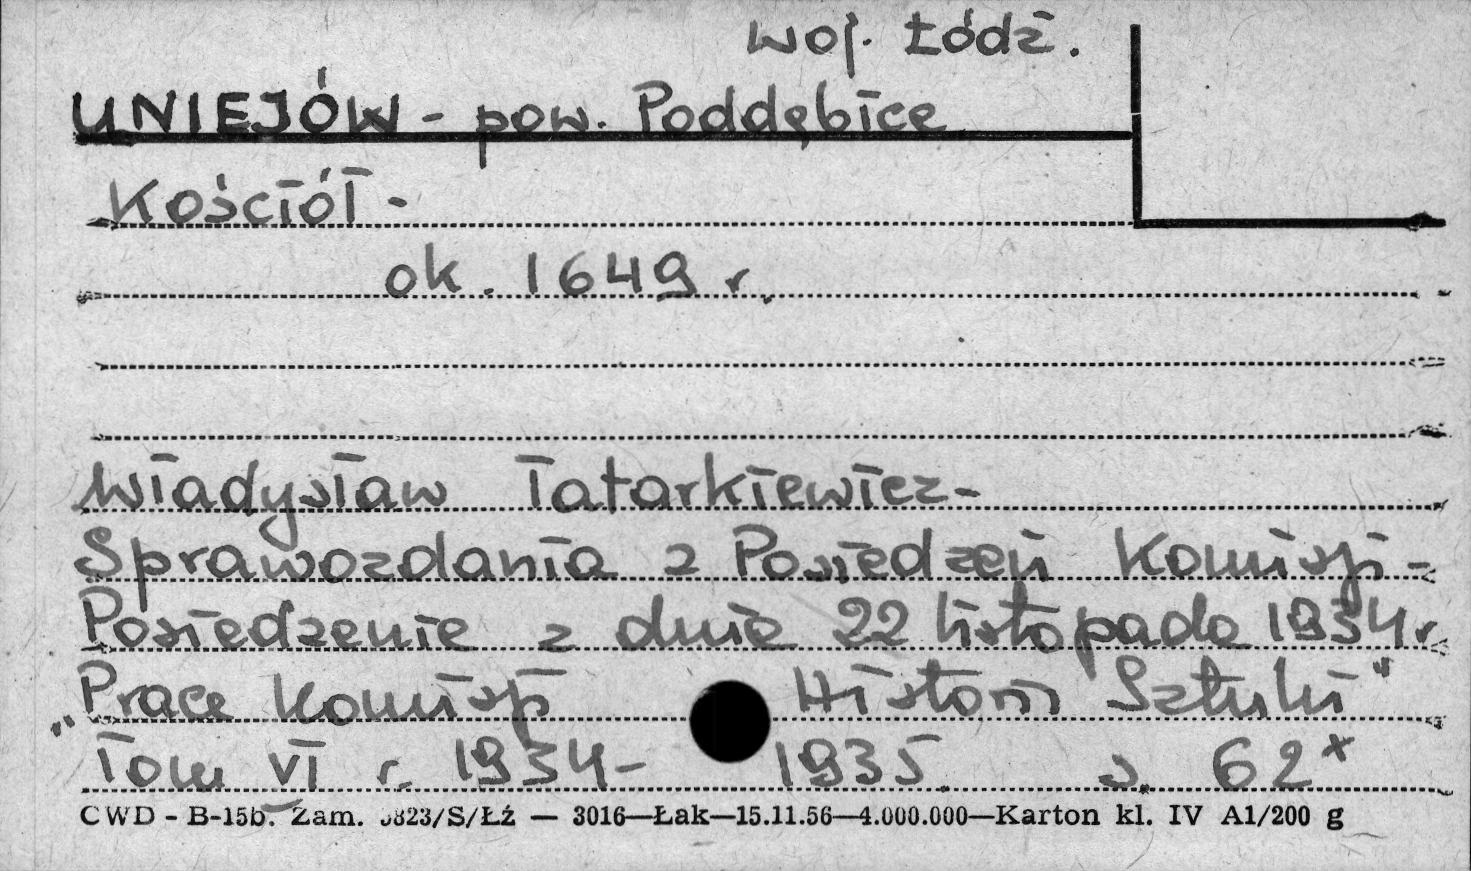 woj. Łódź.
UNIEJÓW - pow. Poddębice
Kościół -
ok. 1649 r.
Władysław Tatarkiewicz -
Sprawozdania z Posiedzeń Komisji -
Posiedzenie z dnia 22 listopada 1934 r.
"Prace Komisji Historii Sztuki"
Tom VI r. 1934 - 1935 s. 62 x
CWD - B-15b. Zam. 5823/S/Łź — 3016—Łak—15.11.56—4.000.000—Karton kl. IV A1/200 g